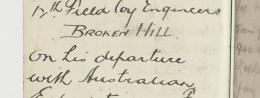 17th Field Coy Engineers
BROKEN HILL.
On his departure
with Australian